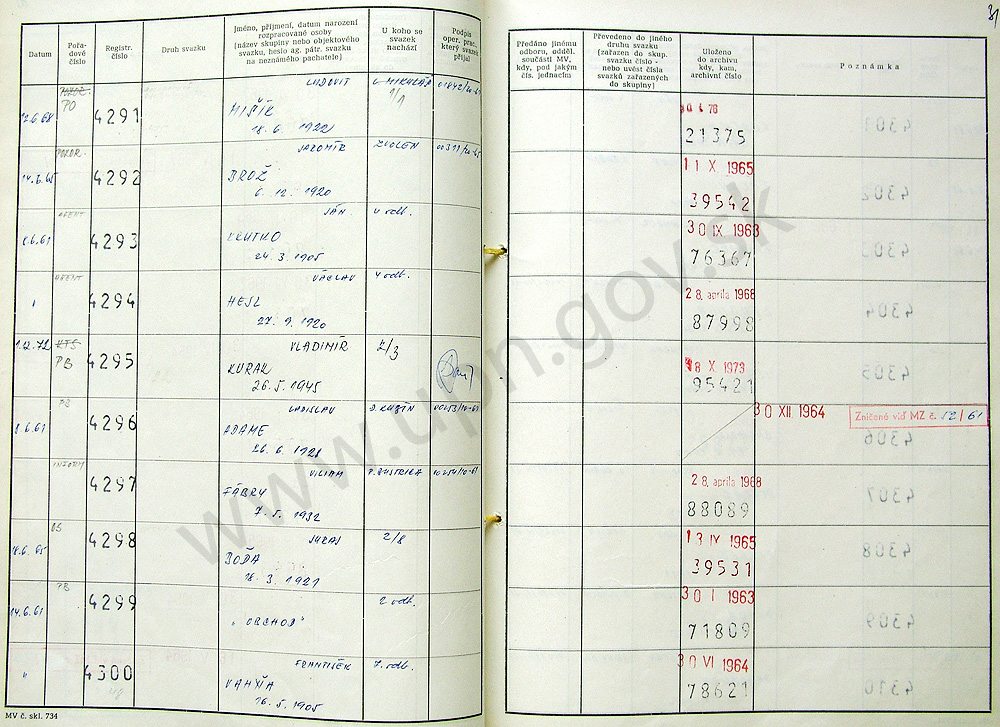 Datum
Pořa-
dové
číslo
Registr.
číslo
Druh svazku
Jméno, příjmení, datum narození
rozpracované osoby
(název skupiny nebo objektového
svazku, heslo ag. pátr. svazku
na neznámého pachatele)
U koho se
svazek
nachází
Podpis
oper. prac.,
který svazek
přijal
PO
4291
ĽUDOVÍT
MIŠÍK
18. 6. 1922
L. MIKULÁŠ
1/1
4292
JAROMÍR
BROŽ
6. 12. 1920
ZVOLEN
AGENT
4293
JÁN
KRUTKO
24. 3. 1905
4 odb.
AGENT
"
4294
VÁCLAV
HESL
27. 9. 1920
4 odb.
1.12.72
PB
4295
VLADIMÍR
KURAK
26. 5. 1945
2/3
8.6.61
PB
4296
LADISLAV
ADAME
26. 6. 1921
D. KUBÍN
INFORM.
4297
VILIAM
FÁBRY
7. 5. 1932
P. BYSTRICA
4298
JURAJ
BOĎA
18. 3. 1921
2/8
14.6.61
PB
4299
"OBCHOD"
2 odb.
"
4300
FRANTIŠEK
VAHYŇA
16. 5. 1905
7. odb.
MV č. skl. 734
Předáno jinému
odboru, odděl.
součásti MV,
kdy, pod jakým
čís. jednacím
Převedeno do jiného
druhu svazku
(zařazen do skup.
svazku číslo -
nebo uvést čísla
svazků zařazených
do skupiny)
Uloženo
do archivu
kdy, kam,
archivní číslo
Poznámka
21375
11 X 1965
39542
30 IX 1963
76367
28. apríla 1968
87998
18 X 1973
95421
30 XII 1964
Zničené viď MZ č. 52/61
28. apríla 1968
88089
13 IV 1965
39531
30 I 1963
71809
30 VI 1964
78621
www.upn.gov.sk